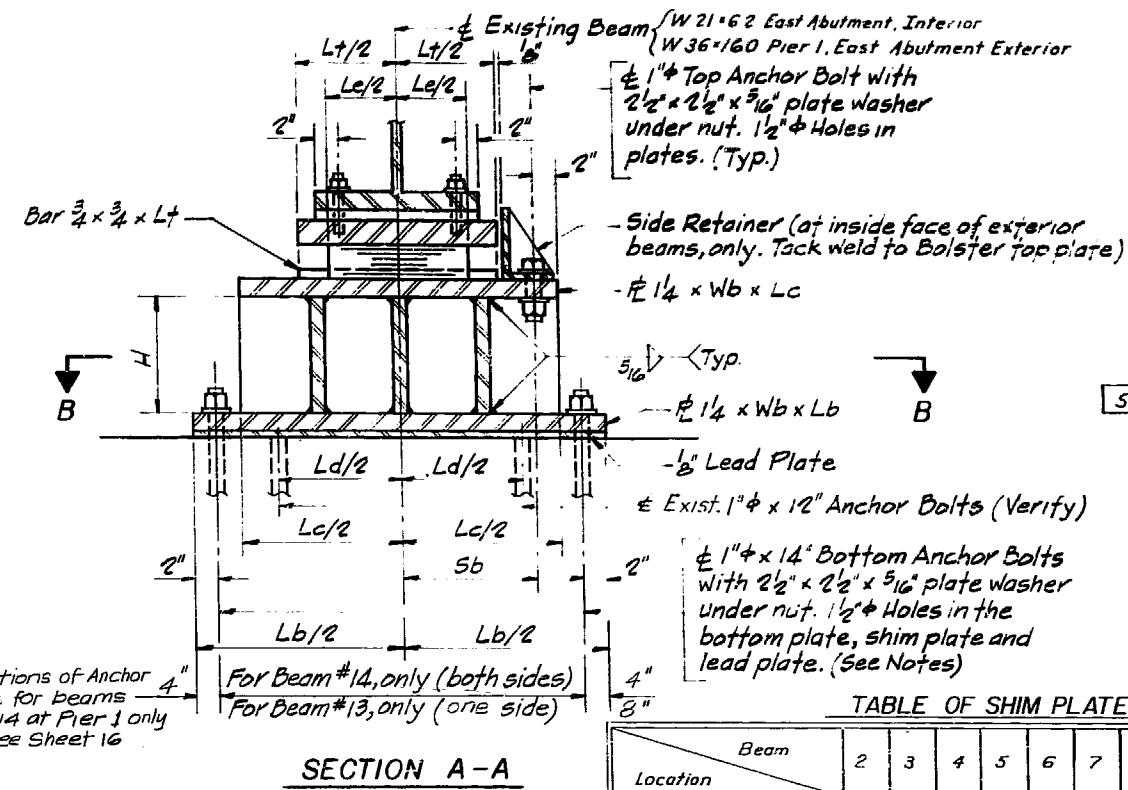 ℄ Existing Beam { W 21×62 East Abutment, Interior
W 36×160 Pier 1, East Abutment Exterior
Lt/2 Lt/2 1/8"
Le/2 Le/2
2" 2"
℄ 1"φ Top Anchor Bolt with
2½" × 2½" × 5/16" plate washer
under nut. 1½"φ Holes in
plates. (Typ.)
2"
Bar ¾ × ¾ × Lt
Side Retainer (at inside face of exterior
beams, only. Tack weld to Bolster top plate)
PL 1¼ × Wb × Lc
H
5/16 Typ.
B B
PL 1¼ × Wb × Lb
S
1/8" Lead Plate
Ld/2 Ld/2
℄ Exist. 1"φ × 12" Anchor Bolts (Verify)
Lc/2 Lc/2
2" Sb 2"
℄ 1"φ × 14" Bottom Anchor Bolts
with 2½" × 2½" × 5/16" plate washer
under nut. 1½"φ Holes in the
bottom plate, shim plate and
lead plate. (See Notes)
Lb/2 Lb/2
tions of Anchor
for beams
14 at Pier 1 only
ee Sheet 16
4" For Beam #14, only (both sides) 4"
For Beam #13, only (one side) 8"
SECTION A-A
TABLE OF SHIM PLATE
Beam
Location
2 3 4 5 6 7